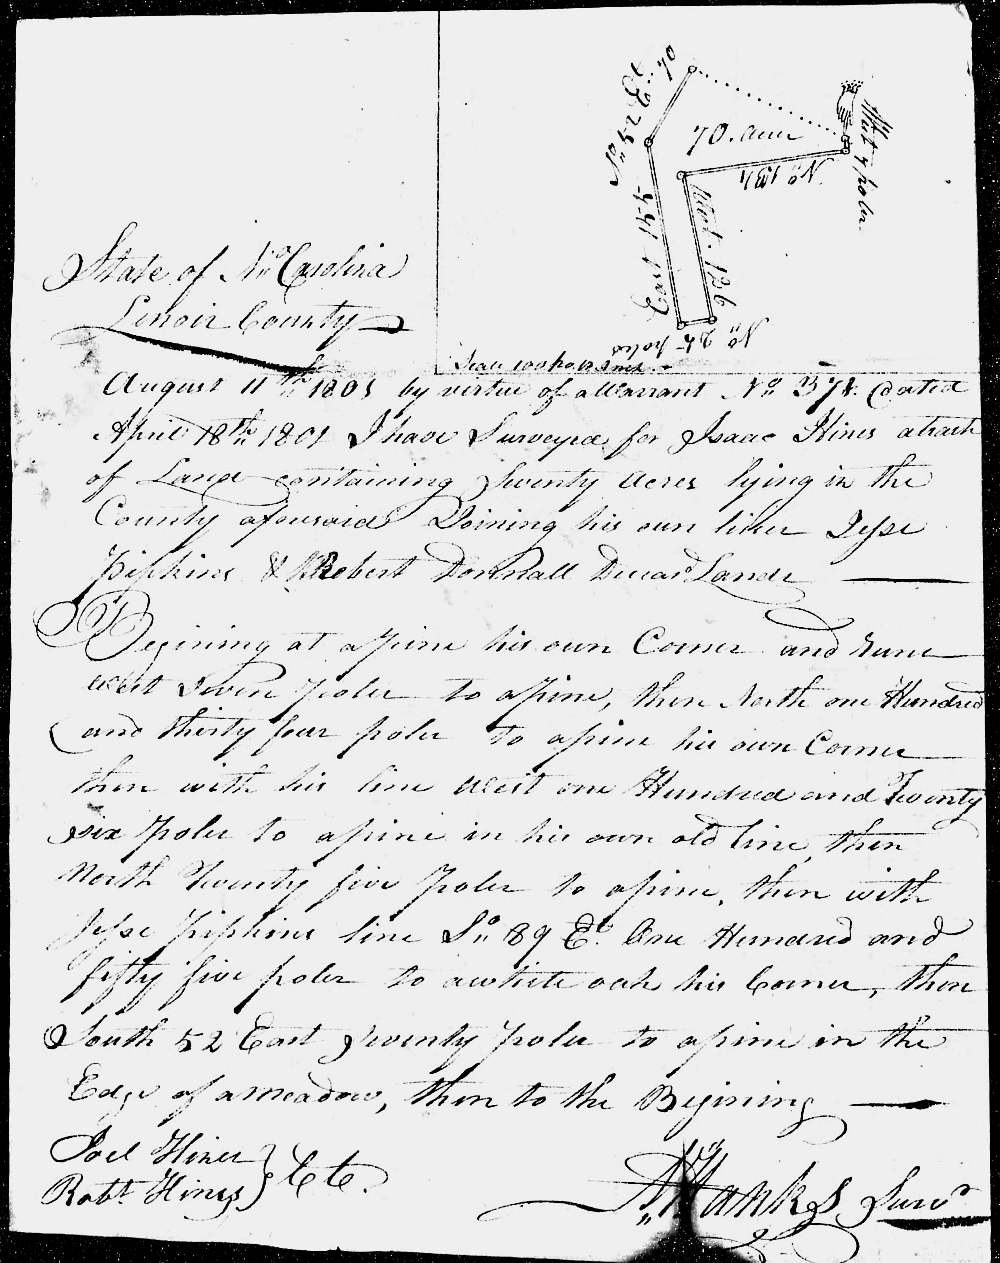 So 52 Et 70
70. acres
West 7 poles.
No 134
East 155
West. 126
No 25 poles
Scale 100 po. an Inch.
State of No Carolina
Lenoir County
August 11th 1801 by virtue of a Warrant No 374. Dated
April 18th 1801 I have Surveyed for Isaac Hines a track
of Land containing Seventy Acres lying in the
County aforesaid Joining his own lines Jesse
Pipkins & Robert Donnall Decasd. Lands
Begining at a pine his own Corner and runs
West Seven poles to a pine, then North one Hundred
and thirty four poles to a pine his own Corner
then with his line West one Hundred and Twenty
six poles to a pine in his own old line, then
North Twenty five poles to a pine, then with
Jesse Pipkins line So 89 Et. One Hundred and
fifty five poles to a white oak his Corner, then
South 52 East Seventy poles to a pine in the
Edge of a meadow, then to the Begining
Joel Hines } CC.
Robt Hines
Hanks Survr